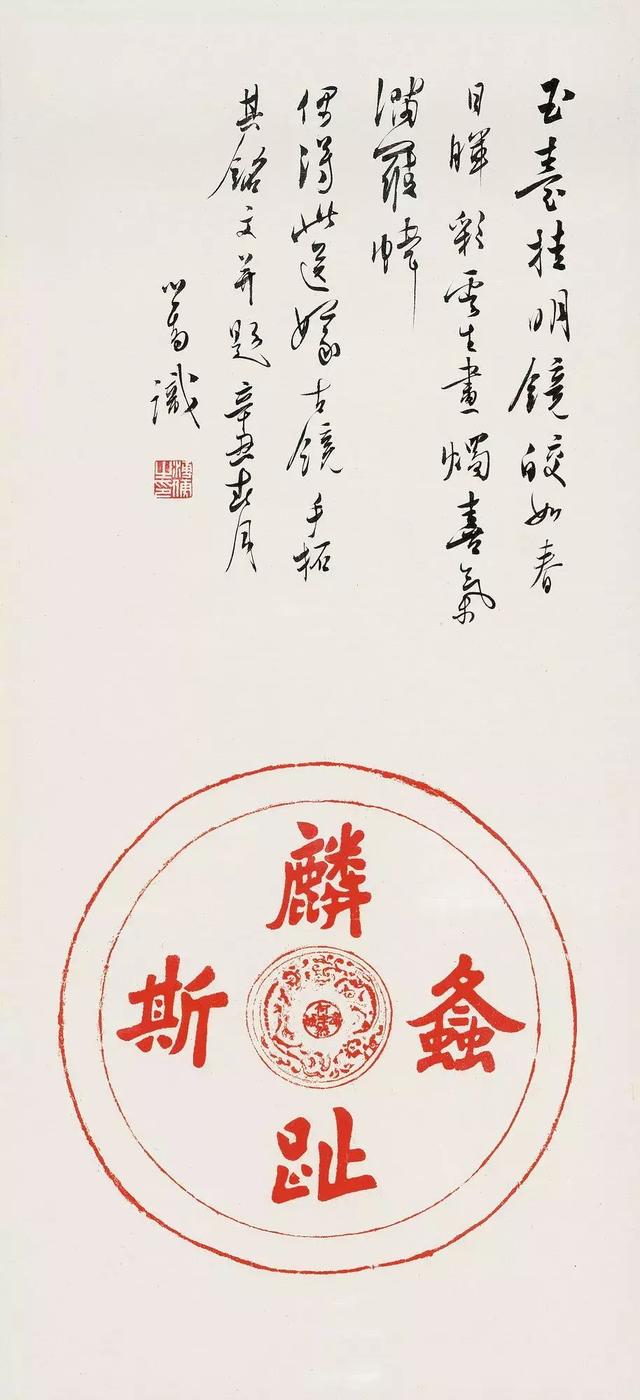 玉臺挂明鏡皎如春
日暉彩雲生畫燭喜氣
滿羅幃
偶得此送嫁古鏡手拓
其銘文并題辛丑春月
心畬識
麟趾
螽斯